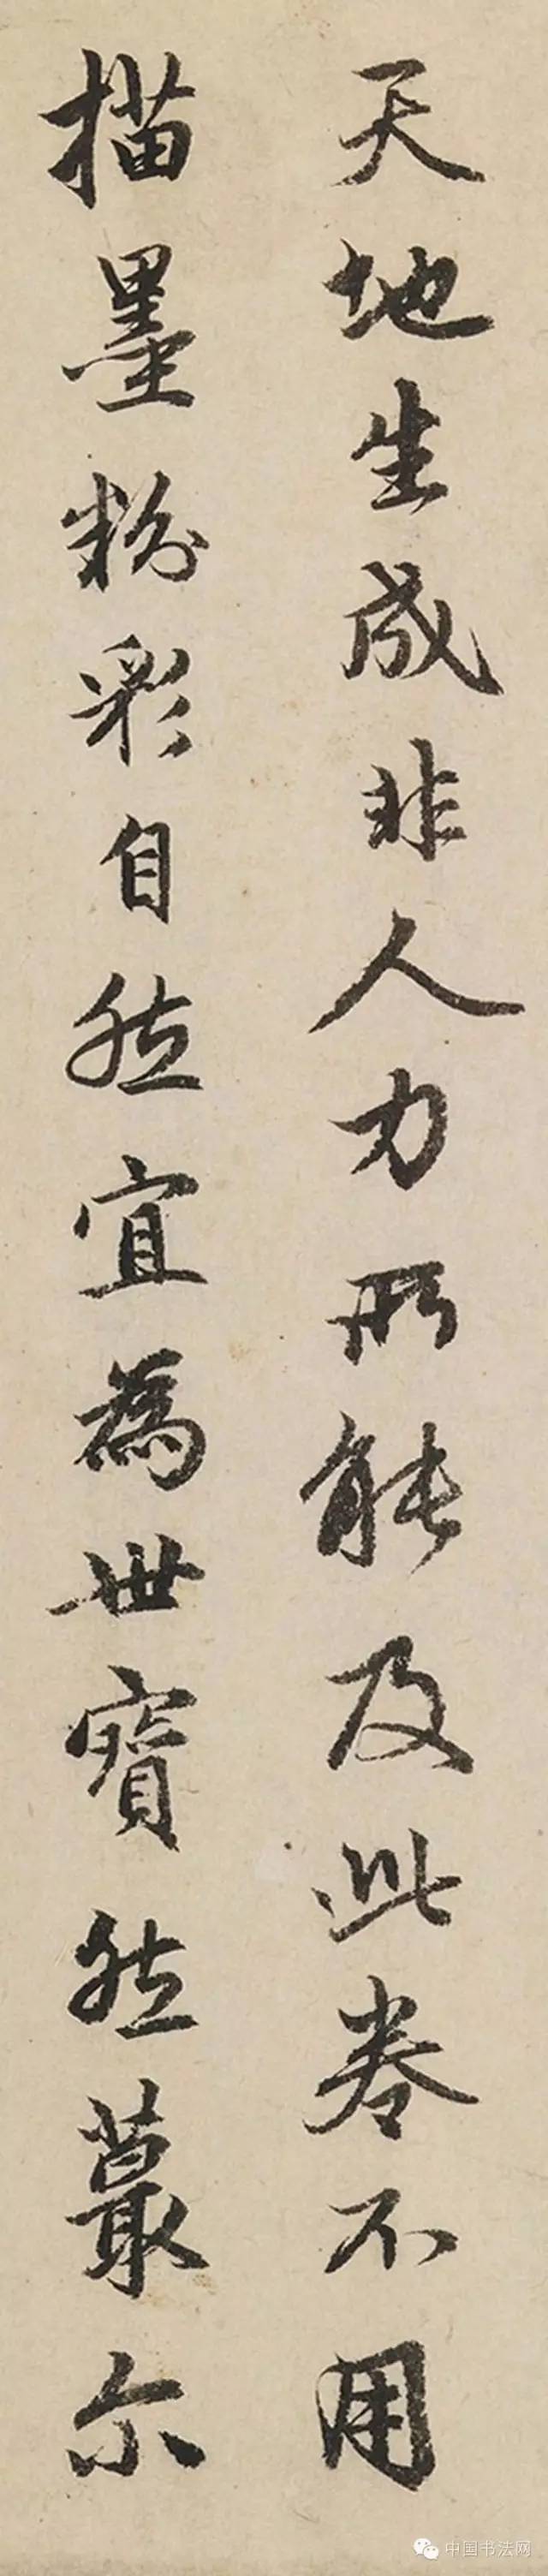 天地生成非人力所能及此卷不用
描墨粉彩自然宜為世寶然蕞尔
中国书法网